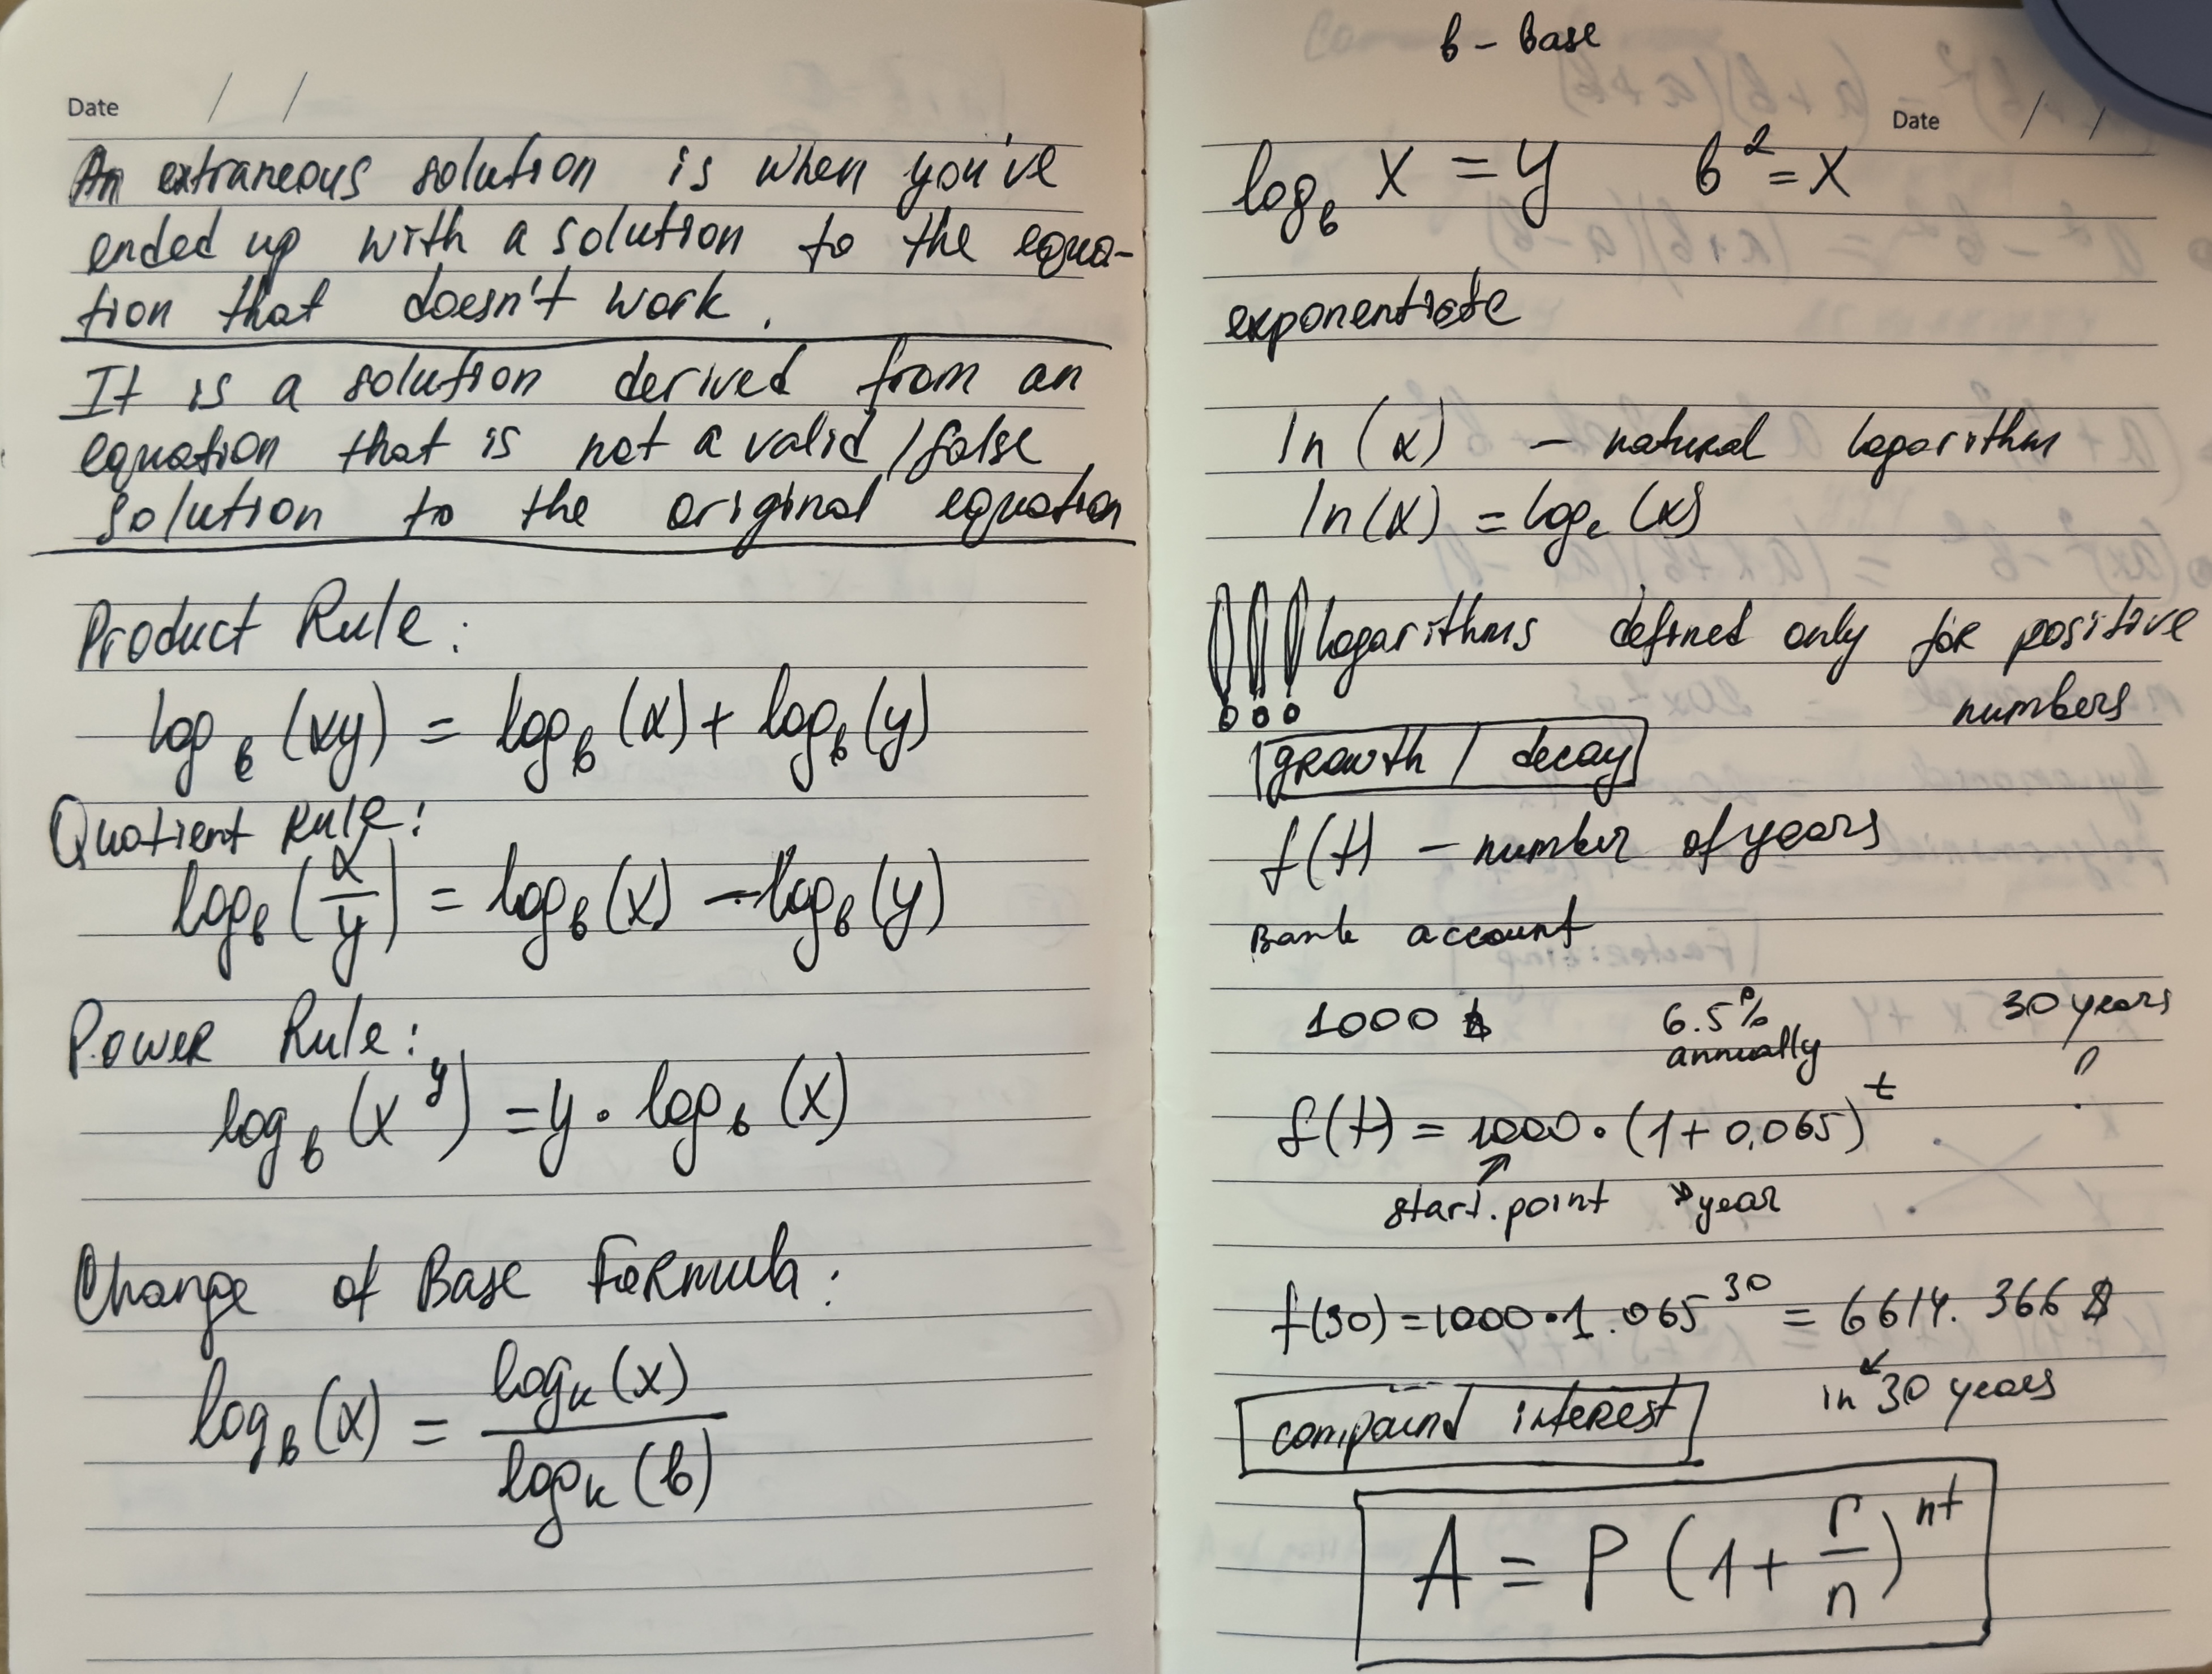 Date / /
An extraneous solution is when you've
ended up with a solution to the equa-
tion that doesn't work.
It is a solution derived from an
equation that is not a valid /false
solution to the original equation
Product Rule:
log_b (xy) = log_b (x) + log_b (y)
Quotient Rule:
log_b (x/y) = log_b (x) - log_b (y)
Power Rule:
log_b (x^y) = y · log_b (x)
Change of Base Formula:
log_b (x) = log_k (x) / log_k (b)
b - base
Date / /
log_b x = y b^2 = x
exponentiate
ln (x) - natural logarithm
ln(x) = log_e (x)
!!! logarithms defined only for positive
numbers
growth / decay
f(t) - number of years
Bank account
1000 $ 6.5% annually 30 years
?
f(t) = 1000 · (1 + 0,065)^t
start. point year
f(30) = 1000 · 1.065^30 = 6614. 366 $
in 30 years
compound interest
A = P (1 + r/n)^nt